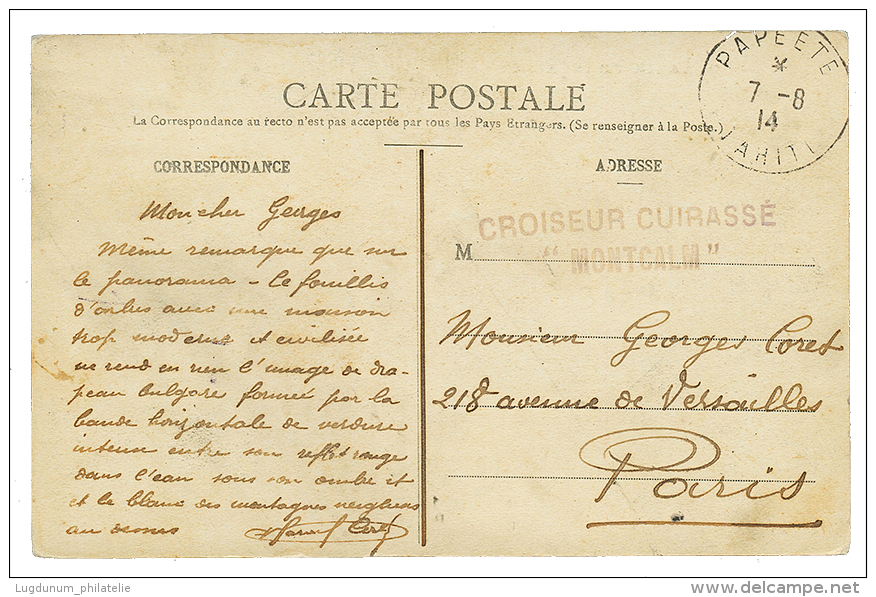 CARTE POSTALE
La Correspondance au recto n'est pas acceptée par tous les Pays Etrangers. (Se renseigner à la Poste.)
PAPEETE
7 -8
14
TAHITI
CORRESPONDANCE
Mon cher Georges
Même remarque que sur
le panorama - le fouillis
d'arbres avec une maison
trop moderne et civilisée
ne rend en rien l'image de dra-
peau bulgare formée par la
bande horizontale de verdure
intense entre son reflet rouge
dans l'eau sous son ombre et
et le blanc des montagnes neigeuses
au dessus
ADRESSE
CROISEUR CUIRASSÉ
"MONTCALM"
M
Monsieur Georges Coret
218 avenue de Versailles
Paris
Lugdunum_philatelie
delcampe.net